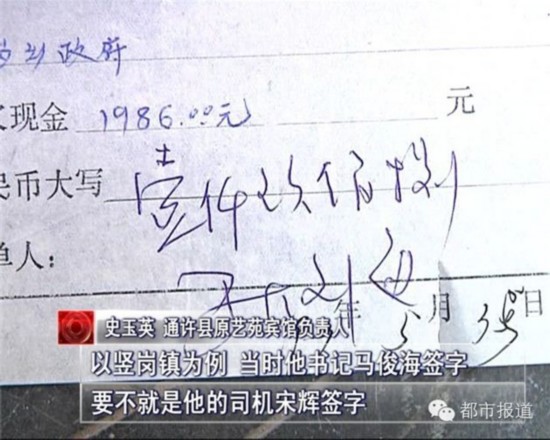 乡政府
现金 1986.00元 元
民币大写 壹仟玖佰捌
单人:
年 5月 日
史玉英 通许县原艺苑宾馆负责人
以竖岗镇为例 当时他书记马俊海签字
要不就是他的司机宋辉签字
都市报道